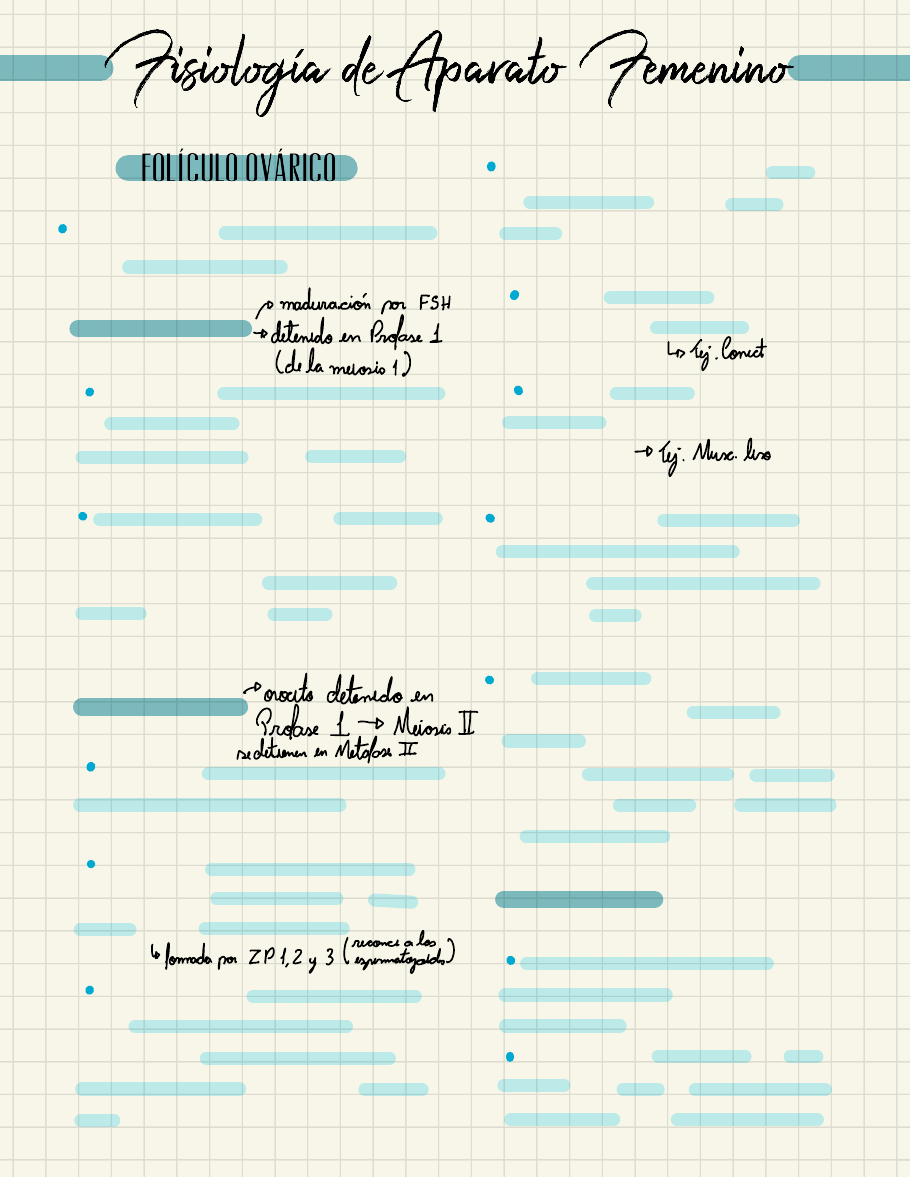 Fisiología de Aparato Femenino
FOLÍCULO OVÁRICO
maduración por FSH
→ detenido en Profase 1
(de la meiosis 1)
ovocito detenido en
Profase 1 → Meiosis II
se detienen en Metafase II
↳ formada por ZP 1, 2 y 3 (reconoce a los
espermatozoides)
↳ Tej. Conect
→ Tej. Musc. liso